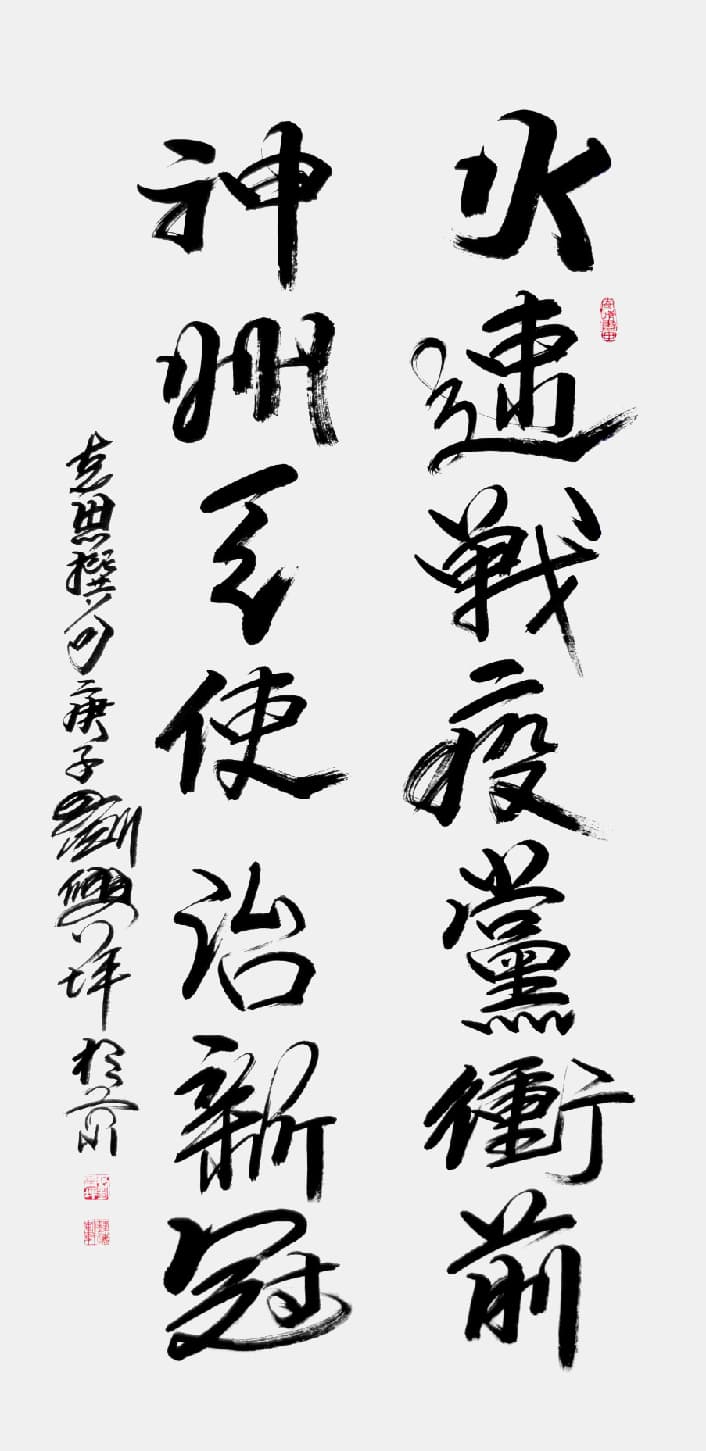 火速戰疫黨衝前
神州天使治新冠
志思撰句庚子劉興祥於前川